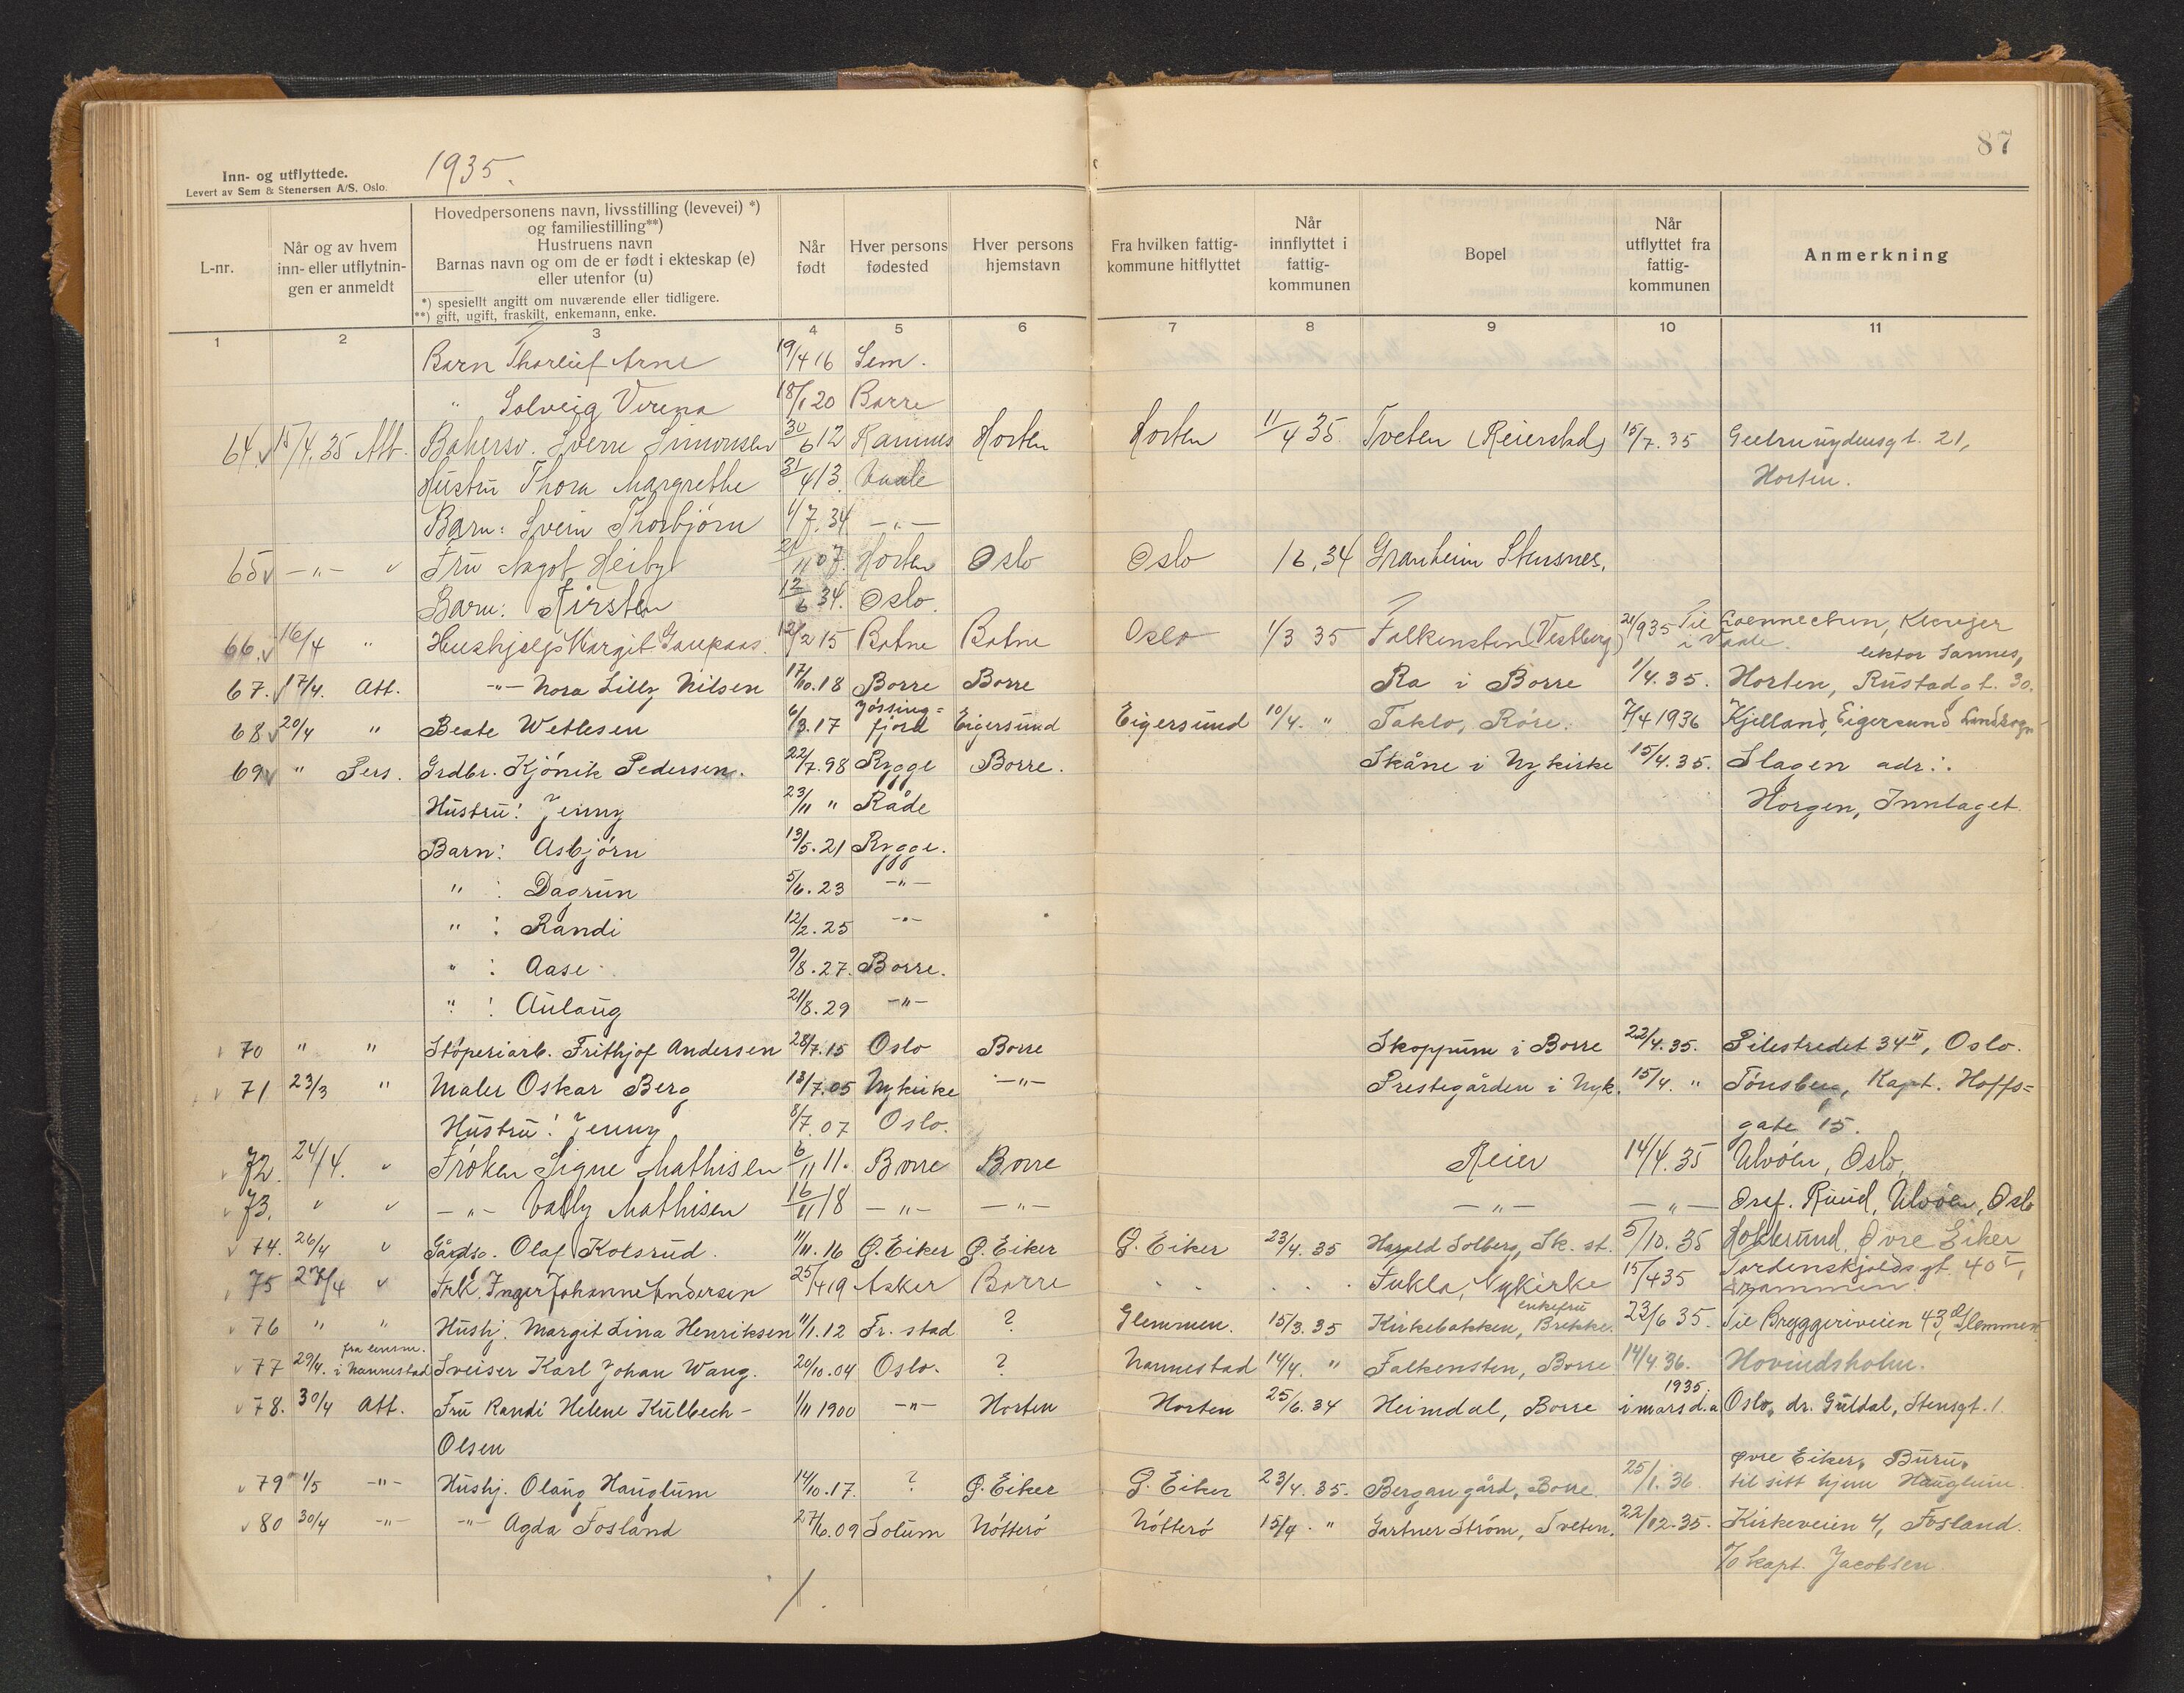 87
1935.
Inn- og utflyttede.
Levert av Sem & Stenersen A/S. Oslo.
L-nr. Når og av hvem inn- eller utflytnin-gen er anmeldt Hovedpersonens navn, livsstilling (levevei) *) og familiestilling**) Hustruens navn Barnas navn og om de er født i ekteskap (e) eller utenfor (u) Når født Hver persons fødested Hver persons hjemstavn Fra hvilken fattig-kommune hitflyttet Når innflyttet i fattig-kommunen Bopel Når utflyttet fra fattig-kommunen Anmerkning
*) spesiellt angitt om nuværende eller tidligere.
**) gift, ugift, fraskilt, enkemann, enke.
1 2 3 4 5 6 7 8 9 10 11
Barn Thorleif Arne 19/4 16 Sem.
" Solveig Verena 18/1 20 Borre
64. 15/4. 35 Att. Bakersv. Sverre Simonsen 30/6 12 Ramnes Horten Horten 11/4 35. Tveten (Reierstad) 15/7. 35 21,
Hustru Thora Margrethe 31/4 13. Vaale Horten.
Barn: Svein Thorbjørn 1/7. 34 -"-
65 -"- " Fru Aagot Heiby 21/11 07. Horten Oslo Oslo 1 6. 34 Granheim Stensnes.
Barn: Kirsten 12/6 34. Oslo.
66. 16/4 " Hushjelp Margit Gaupaas. 12/2 15 Botne Botne Oslo 1/3 35 Falkensten (Vestberg) 21/9 35 Til i Vaale.
lektor Sannes,
67. 17/4. Att. -"- Nora Lilly Nilsen 17/10.18 Borre Borre Ra i Borre 1/4. 35. Horten, Rustadgt. 30.
68 20/4 " Beate Wetlesen 6/3. 17 Jøssing=fjord Eigersund Eigersund 10/4. " Taklo, Røre. 7/4 1936 Kjelland, Eigersund Landsogn
69 " Pers. Grdbr. Kjønik Pedersen. 22/7. 98 Rygge Borre. Skåne i Nykirke 15/4. 35. Slagen adr.:
Hustru: Jenny 23/11 " Råde Horgen, Inntaget.
Barn: Asbjørn 13/5. 21 Rygge.
" : Dagrun 5/6. 23 -"-
" : Randi 12/2. 25 -"-
" : Aase 9/8. 27. Borre.
" : Aulaug 21/8. 29 -"-
70 " " Støperiarb. Frithjof Andersen 28/7. 15 Oslo Borre Skoppum i Borre 22/4. 35. Pilestredet 34 II, Oslo.
71 23/3 " Maler Oskar Berg 13/7. 05 Nykirke -"- Prestegården i Nyk. 15/4. " Tønsberg, Kapt. Hoffs=
Hustru: Jenny 8/7. 07 Oslo. gate 15.
72. 24/4. " Frøken Signe Mathisen 6/11 11. Borre Borre Reier 14/4. 35 Ulvøen, Oslo,
73. " " -"- Vally Mathisen 16/11 18 -"- -"- -"- -"- Ruud, Ulvøen, Oslo
74. 26/4 " Gårdsg. Olaf Kolsrud. 11/11. 16 Ø. Eiker Ø. Eiker Ø. Eiker 23/4. 35 Harald Solberg, Sk. st. 5/10. 35 Hokksund, Øvre Eiker
75 27/4 " Frk. Inger Johanne Andersen 25/4 19 Asker Borre . . . . . Fukla, Nykirke 15/4 35 Tordenskjoldsgt. 40 I, Drammen.
76 " " Hushj. Margit Lina Henriksen 11/1. 12 Fr. stad ? Glemmen. 15/3. 35 Kirkebakken, enkefru Brekke. 23/6 35. Til Bryggeriveien 43, Glemmen
77 29/4. fra lensm. i Nannestad Sveiser Karl Johan Wang. 20/10. 04 Oslo. ? Nannestad 14/4. " Falkensten, Borre 14/4 36. Hovindsholm.
78. 30/4 Att. Fru Randi Helene Kulbech- 1/11 1900 -"- Horten Horten 25/6. 34 Heimdal, Borre i mars d.a 1935. Oslo, dr. Guldal, Stensgt. 1.
Olsen
79 1/5 -"- Hushj. Olaug Hauglum 14/10. 17. ? Ø. Eiker Ø. Eiker 23/4. 35. Bergan gård, Borre. 25/1. 36 Øvre Eiker, Burud, til sitt hjem Hauglum.
80 30/4 -"- -"- Agda Fosland 27/6. 09 Solum Nøtterø Nøtterø 15/4. " Gartner Strøm, Tveten. 22/12. 35. Kirkeveien 4, Fosland.
% kapt. Jacobsen.